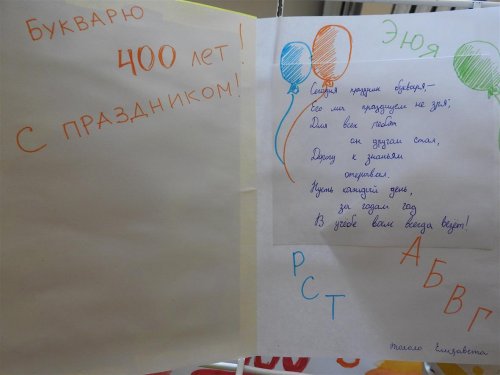 БУКВАРЮ
400 лет!
С ПРАЗДНИКОМ!
ЭЮЯ
Сегодня праздник букваря,—
Его мы празднуем не зря,
Для всех ребят
он другом стал,
Дорогу к знаньям
открывал.
Пусть каждый день,
за годом год
В учёбе вам всегда везёт!
Р
С
Т
А
Б
В
Г
Елизавета